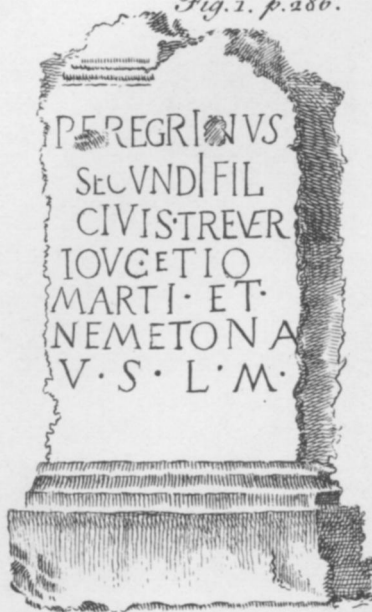 Fig. 1. p. 286.
PEREGRINVS
SECVNDI FIL
CIVIS·TREVER
IOVCETIO
MARTI·ET·
NEMETONA
V·S·L·M·